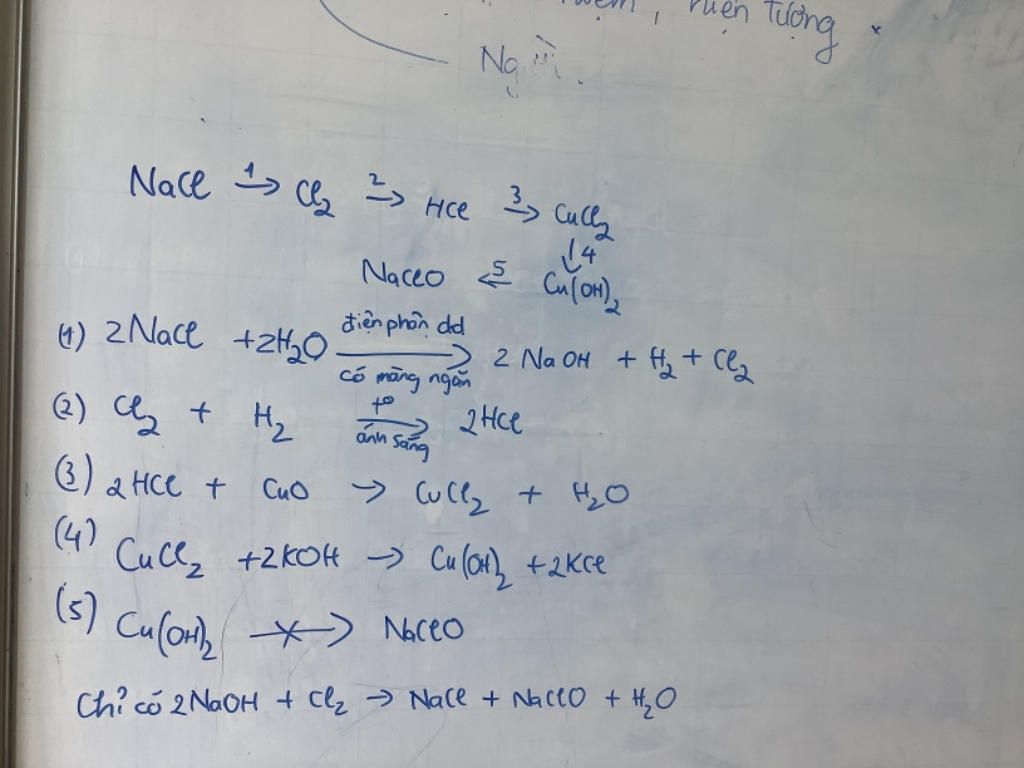 , hiện tượng
NaCl 1→ Cl2 2→ HCl 3→ CuCl2
↓4
NaClO ←5 Cu(OH)2
(1) 2NaCl +2H2O điện phân dd có màng ngăn → 2 NaOH + H2 + Cl2
(2) Cl2 + H2 to ánh sáng → 2HCl
(3) 2HCl + CuO → CuCl2 + H2O
(4) CuCl2 +2KOH → Cu(OH)2 +2KCl
(5) Cu(OH)2 -x-> NaClO
Chỉ có 2NaOH + Cl2 → NaCl + NaClO + H2O